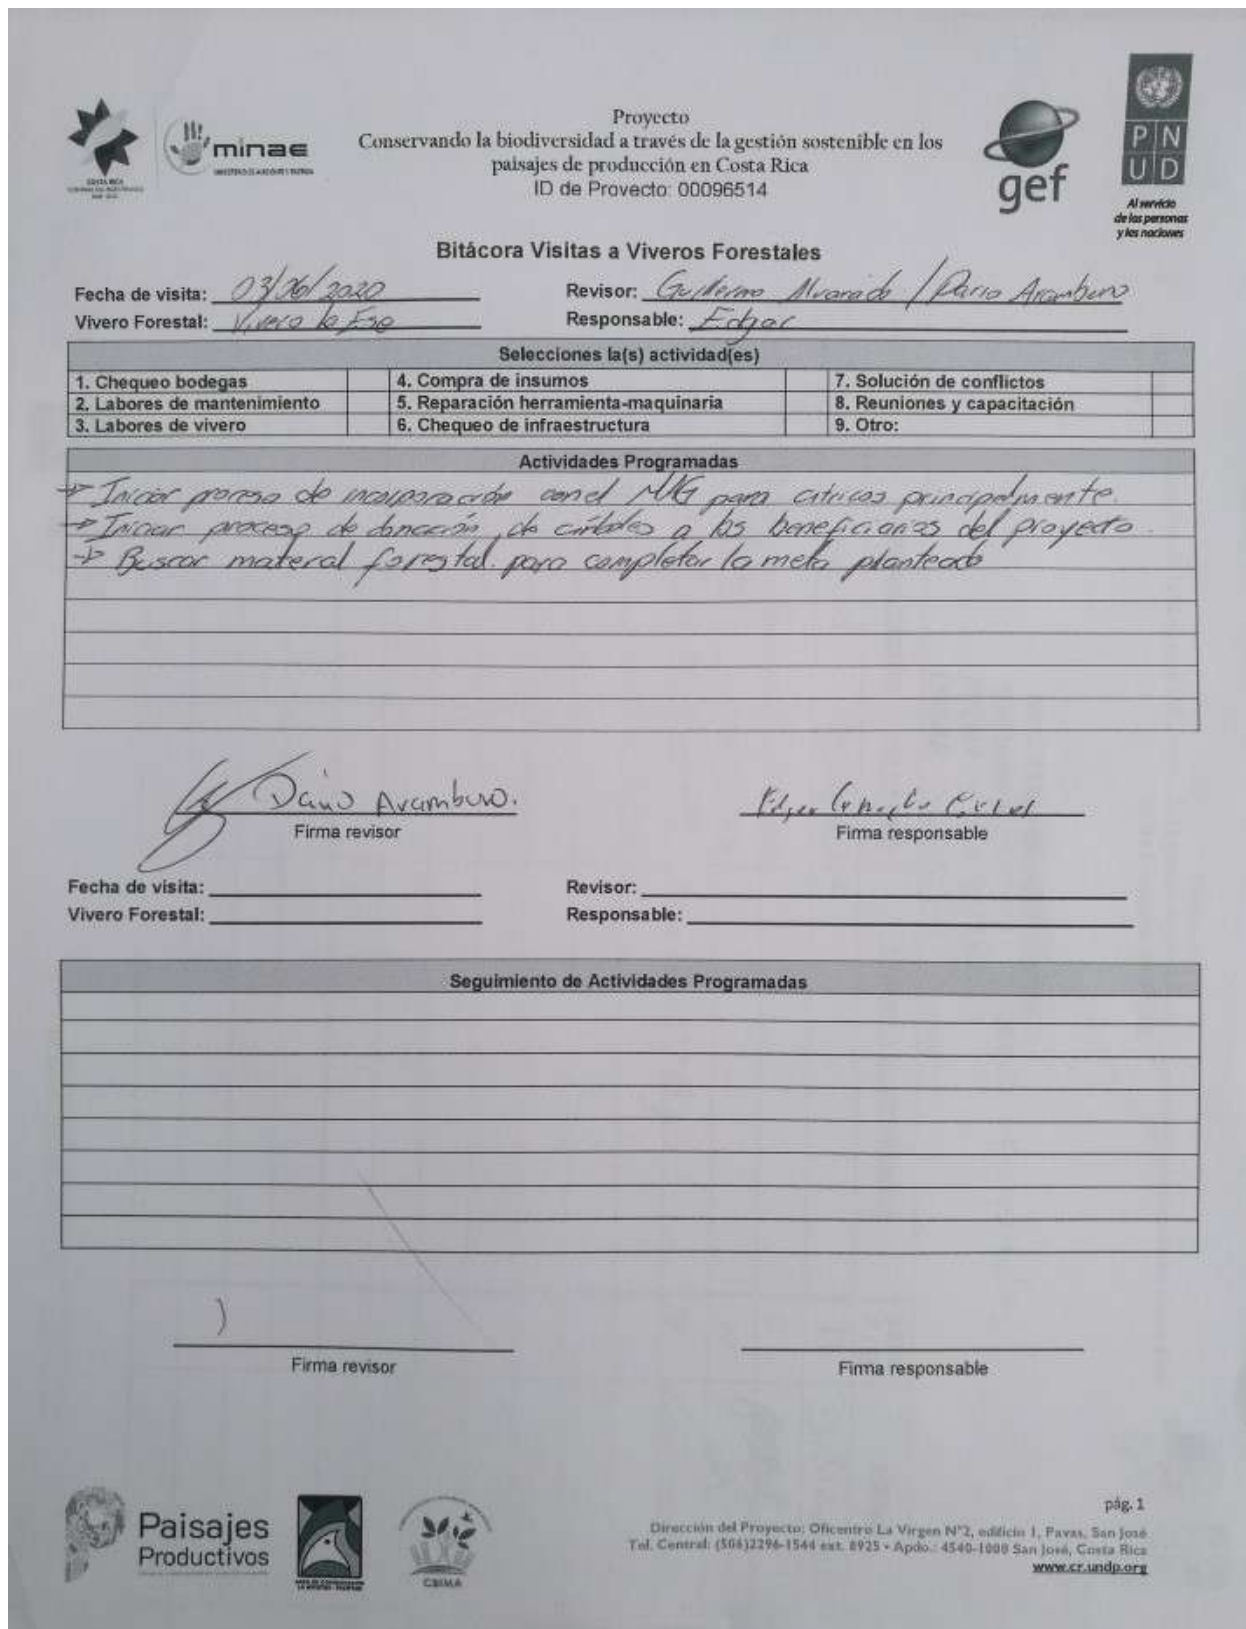 minae
Proyecto
Conservando la biodiversidad a través de la gestión sostenible en los
paisajes de producción en Costa Rica
ID de Proyecto: 00096514
gef
PNUD
Al servicio
de las personas
y las naciones
Bitácora Visitas a Viveros Forestales
Fecha de visita: 03/06/2020 Revisor: Guillermo Alvarado / Dario Aramburo
Vivero Forestal: Vivero la Ese Responsable: Edgar
Selecciones la(s) actividad(es)
1. Chequeo bodegas 4. Compra de insumos 7. Solución de conflictos
2. Labores de mantenimiento 5. Reparación herramienta-maquinaria 8. Reuniones y capacitación
3. Labores de vivero 6. Chequeo de infraestructura 9. Otro:
Actividades Programadas
→ Iniciar proceso de incorporación con el para citricos principalmente.
→ Iniciar proceso de donación de arboles a los beneficiarios del proyecto.
→ Buscar material forestal para completar la meta planteado
Dario Aramburo.
Firma revisor Firma responsable
Fecha de visita: Revisor:
Vivero Forestal: Responsable:
Seguimiento de Actividades Programadas
Firma revisor Firma responsable
pág. 1
Paisajes
Productivos
CBIMA
Dirección del Proyecto: Oficentro La Virgen N°2, edificio 1, Pavas, San José
Tel. Central: (506)2296-1544 ext. 8925 • Apdo.: 4540-1000 San José, Costa Rica
www.cr.undp.org